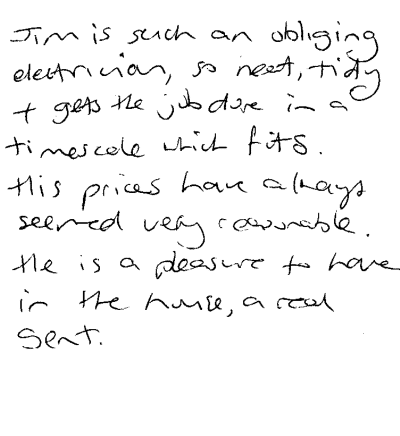 Jim is such an obliging
electrician, so neat, tidy
+ gets the job done in a
timescale which fits.
His prices have always
seemed very reasonable.
He is a pleasure to have
in the house, a real
Gent.